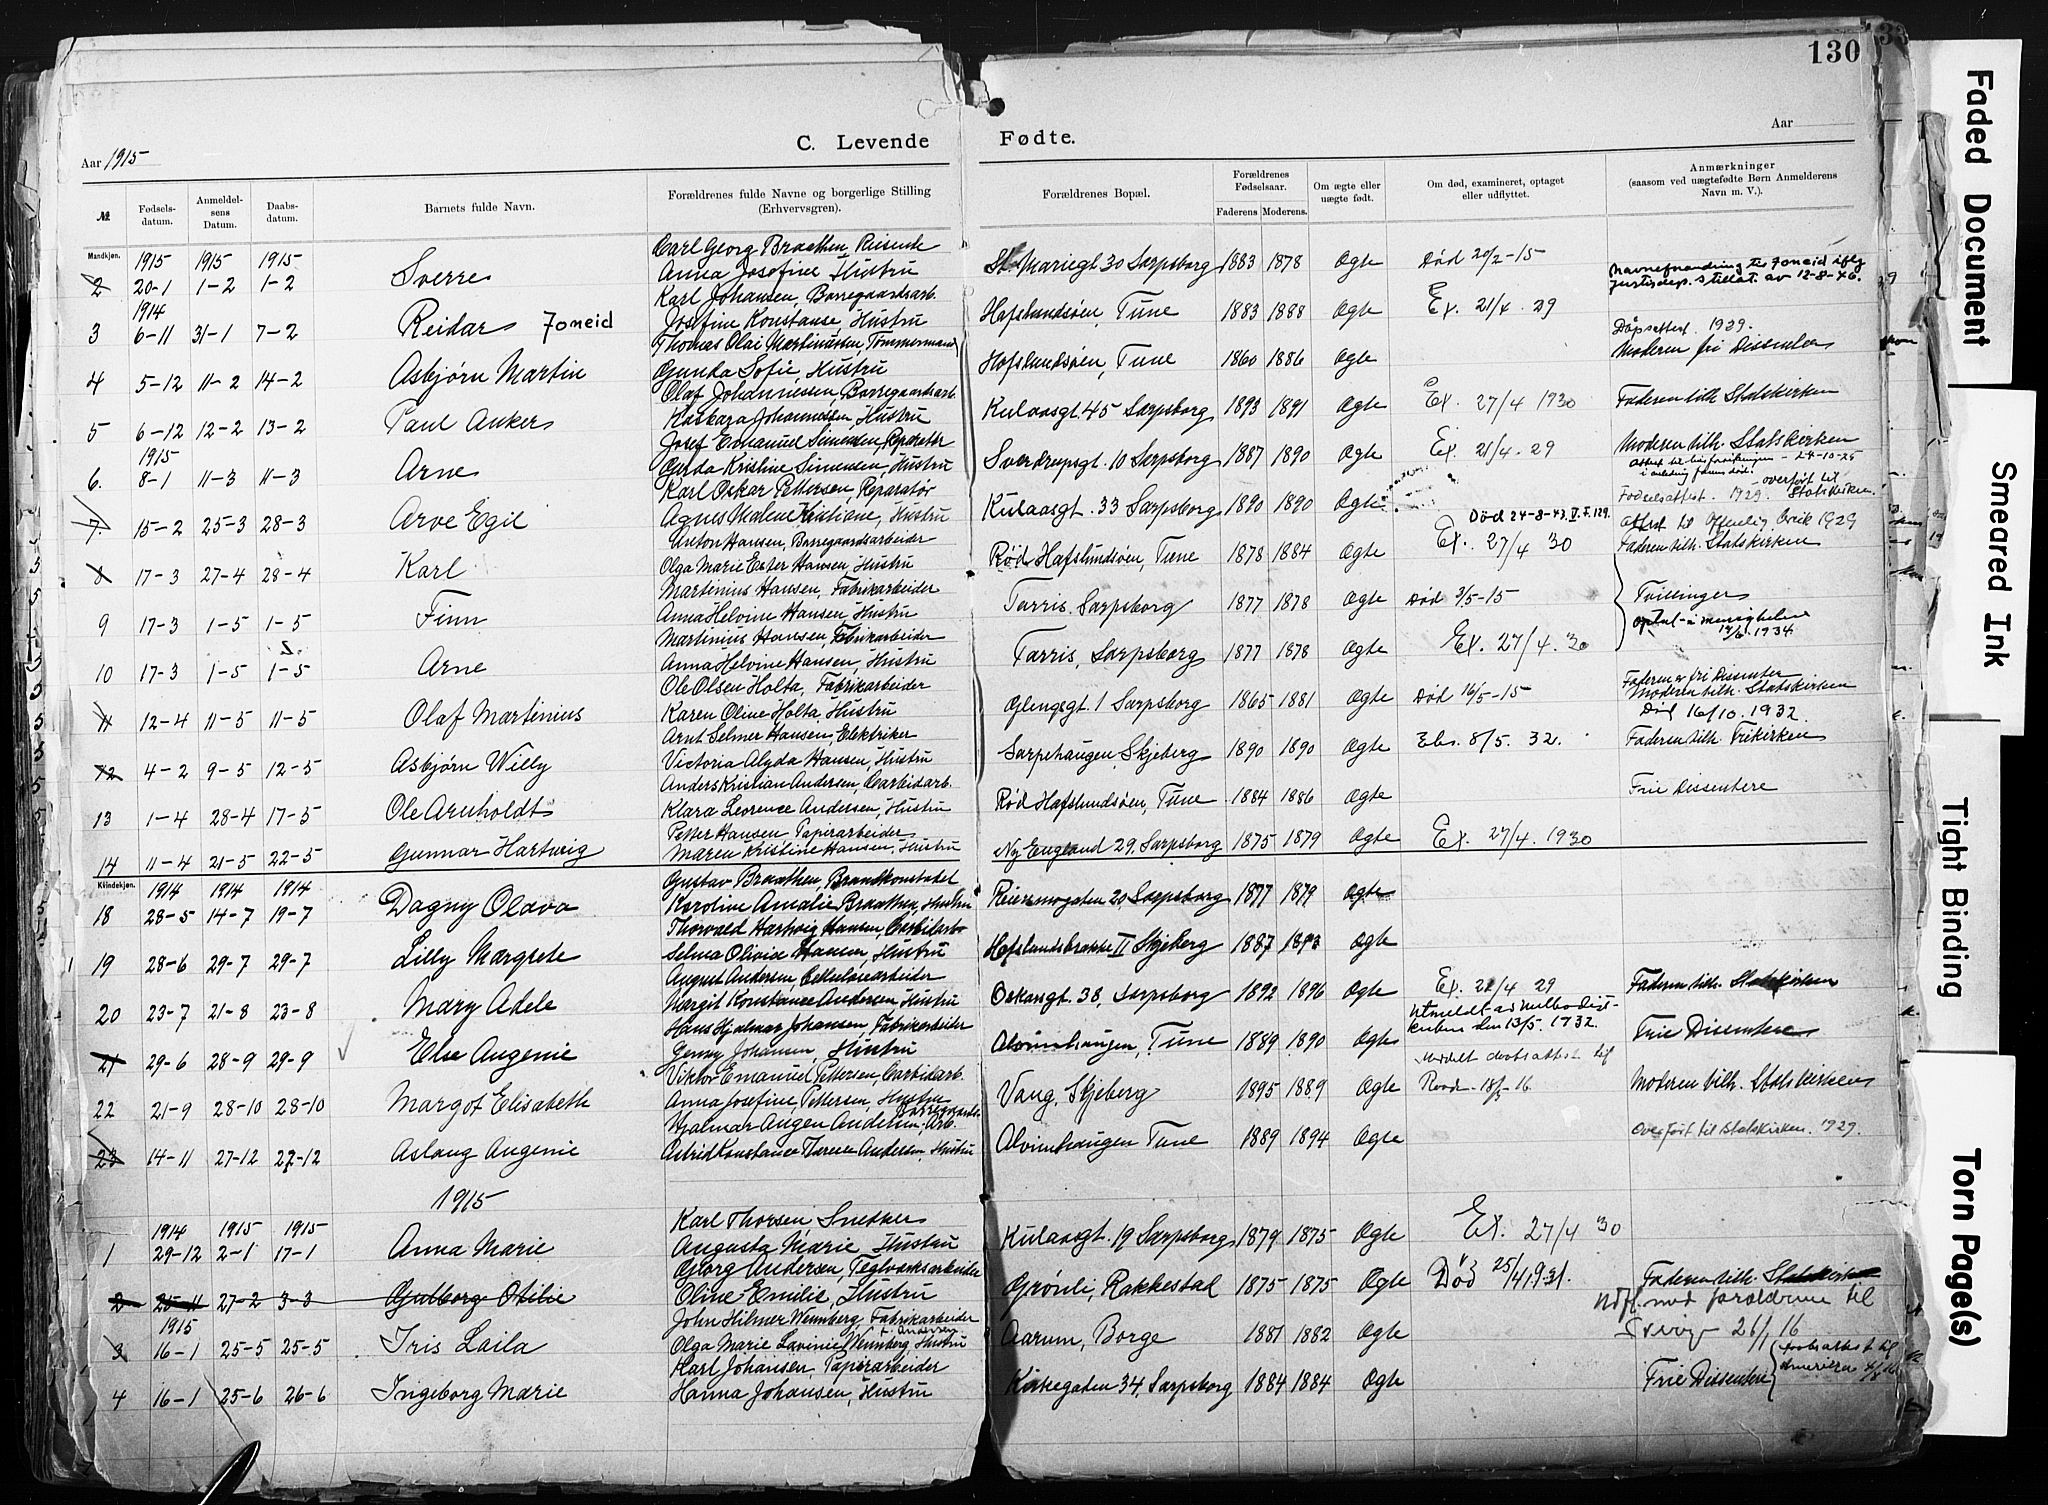 130
C. Levende Fødte.
Aar 1915
Aar
№
Fødsels-datum.
Anmeldel-sens Datum.
Daabs-datum.
Barnets fulde Navn.
Forældrenes fulde Navne og borgerlige Stilling (Erhvervsgren).
Forældrenes Bopæl.
Forældrenes Fødselsaar.
Faderens
Moderens.
Om ægte eller uægte født.
Om død, examineret, optaget eller udflyttet.
Anmærkninger (saasom ved uægtefødte Børn Anmelderens Navn m. V.).
Mandkjøn. 1915 1915 1915 Carl Georg Braathen, Reisende
2 20-1 1-2 1-2 Sverre Anna Josefine Hustru St. Mariegt. 30 Sarpsborg 1883 1878 Ægte Død 20/2-15
1914 Karl Johansen, Borregaardsarb.
3 6-11 31-1 7-2 Reidar Foneid Josefine Konstanse, Hustru Hafslundsøen, Tune 1883 1888 Ægte Ex. 21/4. 29 Navneforandring til Foneid iflg justisdep. stillat. av 12-8-46.
Thomas Olai Martinussen, Tømmermand
4 5-12 11-2 14-2 Asbjørn Martin Gunda Sofie, Hustru Hafslundsøen, Tune 1860 1886 Ægte Døpsattest. 1939. Moderen fri Dissenter
Olaf Johannessen, Borregaardsarb.
5 6-12 12-2 13-2 Paul Anker Barbara Johannessen, Hustru Kulaasgt. 45 Sarpsborg 1893 1891 Ægte Ex. 27/4 1930 Faderen tilh. Statskirken
1915 Josef Emanuel Simensen, Reparatør
6. 8-1 11-3 11-3 Arne Gyda Kristine Simensen, Hustru Sverdrupsgt. 10 Sarpsborg 1887 1890 Ægte Ex. 21/4. 29 Moderen tilh. Statskirken
24-10-25
Karl Oskar Pettersen Reparatør
7. 15-2 25-3 28-3 Arve Egil Agnes Malene Kristiane, Hustru Kulaasgt. 33 Sarpsborg 1890 1890 Ægte Fødselsattest. 1929. overført til Statskirken.
Død 24-8-43. attest til Offentlig bruk 1929
Anton Hansen, Borregaardsarbeider
8 17-3 27-4 28-4 Karl Olga Marie Ester Hansen, Hustru Rød Hafslundsøen, Tune 1878 1884 Ægte Ex. 27/4 30 Faderen tilh. Statskirken
Martinius Hansen, Fabrikarbeider
9 17-3 1-5 1-5 Finn Anna Helvine Hansen, Hustru Tarris, Sarpsborg 1877 1878 Ægte Død 3/5-15 Tvillinger
Martinius Hansen, Fabrikarbeider
10 17-3 1-5 1-5 Arne Anna Helvine Hansen, Hustru Tarris, Sarpsborg 1877 1878 Ægte Ex. 27/4. 30 Optat i menigheten 1934
Ole Olsen Holta, Fabrikarbeider
11 12-4 11-5 11-5 Olaf Martinius Karen Oline Holta, Hustru Glengsgt. 1 Sarpsborg 1865 1881 Ægte Død 16/5-15 Faderen er fri Dissenter Moderen tilh. Statskirken
Død 16/10. 1932.
Arnt Selmer Hansen, Elektriker
12 4-2 9-5 12-5 Asbjørn Willy Victoria Alyda Hansen, Hustru Sarpehaugen, Skjeberg 1890 1890 Ægte 8/5. 32. Faderen tilh. Frikirken
Anders Kristian Andersen, Carbidarb.
13 1-4 28-4 17-5 Ole Arnholdt Klara Leorence Andersen, Hustru Rød Hafslundsøen, Tune 1884 1886 Ægte Frie Dissentere
Petter Hansen Papirarbeider
14 11-4 21-5 22-5 Gunnar Hartwig Maren Kristine Hansen, Hustru Ny England 29. Sarpsborg 1875 1879 Ægte Ex. 27/4. 1930
Kvindekjøn. 1914 1914 1914 Gustav Braathen, Brandkonstabel
18 28-5 14-7 19-7 Dagny Olava Karoline Amalie Braathen, Hustru 20 Sarpsborg 1877 1879 Ægte
Thorvald Hartvig Hansen, Carbidarb.
19 28-6 29-7 29-7 Lilly Margrete Selma Olivia Hansen, Hustru Hafslundsbrakke II Skjeberg 1887 1893 Ægte
August Andersen, Cellulosearbeider
20 23-7 21-8 23-8 Mary Adele Margit Konstance Andersen Hustru Oskarsgt. 38, Sarpsborg 1892 1896 Ægte Ex. 21/4 29 Faderen tilh. Statskirken
Hans Hjalmar Johansen, Fabrikarbeider
21 29-6 28-9 29-9 Else Augenie Jenny Johansen, Hustru Alvimhaugen, Tune 1889 1890 Ægte Utmeldt av Methodistkirken den 13/5. 1932. Frie Dissentere
Viktor Emanuel Pettersen, Carbidarb.
22 21-9 28-10 28-10 Margot Elisabeth Anna Josefine, Pettersen, Hustru Vang, Skjeberg 1895 1889 Ægte Meddelt daabsattest til 16 Moderen tilh. Statskirken
Hjalmar Augen Andersen, Borregaards. Arb.
23 14-11 27-12 27-12 Aslaug Augenie Astrid Konstance Andersen, Hustru Alvimhaugen Tune 1889 1894 Ægte Overført til Statskirken. 1929.
1915
1914 1915 1915 Karl Thorsen, Snekker
1 29-12 2-1 17-1 Anna Marie Augusta Marie, Hustru Kulaasgt. 19 Sarpsborg 1879 1875 Ægte Ex. 27/4 30
Georg Andersen, Teglværksarbeider
2 25-11 27-2 3-3 Gudborg Otilie Oline Emilie, Hustru Grønli, Rakkestad 1875 1875 Ægte Død 25/4 1931. Faderen tilh. Statskirken
1915 John Hilmer Wennberg, Fabrikarbeider
3 16-1 25-5 25-5 Iris Laila Olga Marie Lavinie Wennberg, Hustru Aarum, Borge 1881 1882 Ægte Udfl. med forældrene til Sverige 26/1 16
Karl Johansen, Papirarbeider
4 16-1 25-6 26-6 Ingeborg Marie Hanna Johansen, Hustru Kirkegaden 34, Sarpsborg 1884 1884 Ægte Frie Dissentere Daabsattest til Amerika
Faded Document
Smeared Ink
Tight Binding
Torn Page(s)